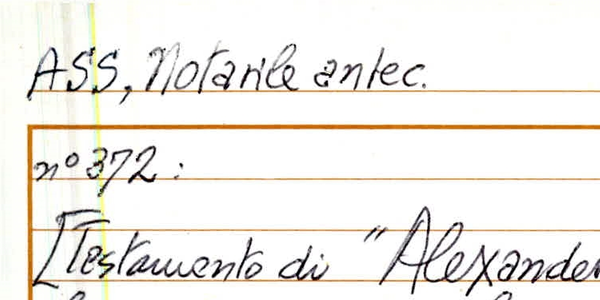 ASS, Notarile antec.
n° 372:
[Testamento di "Alexander